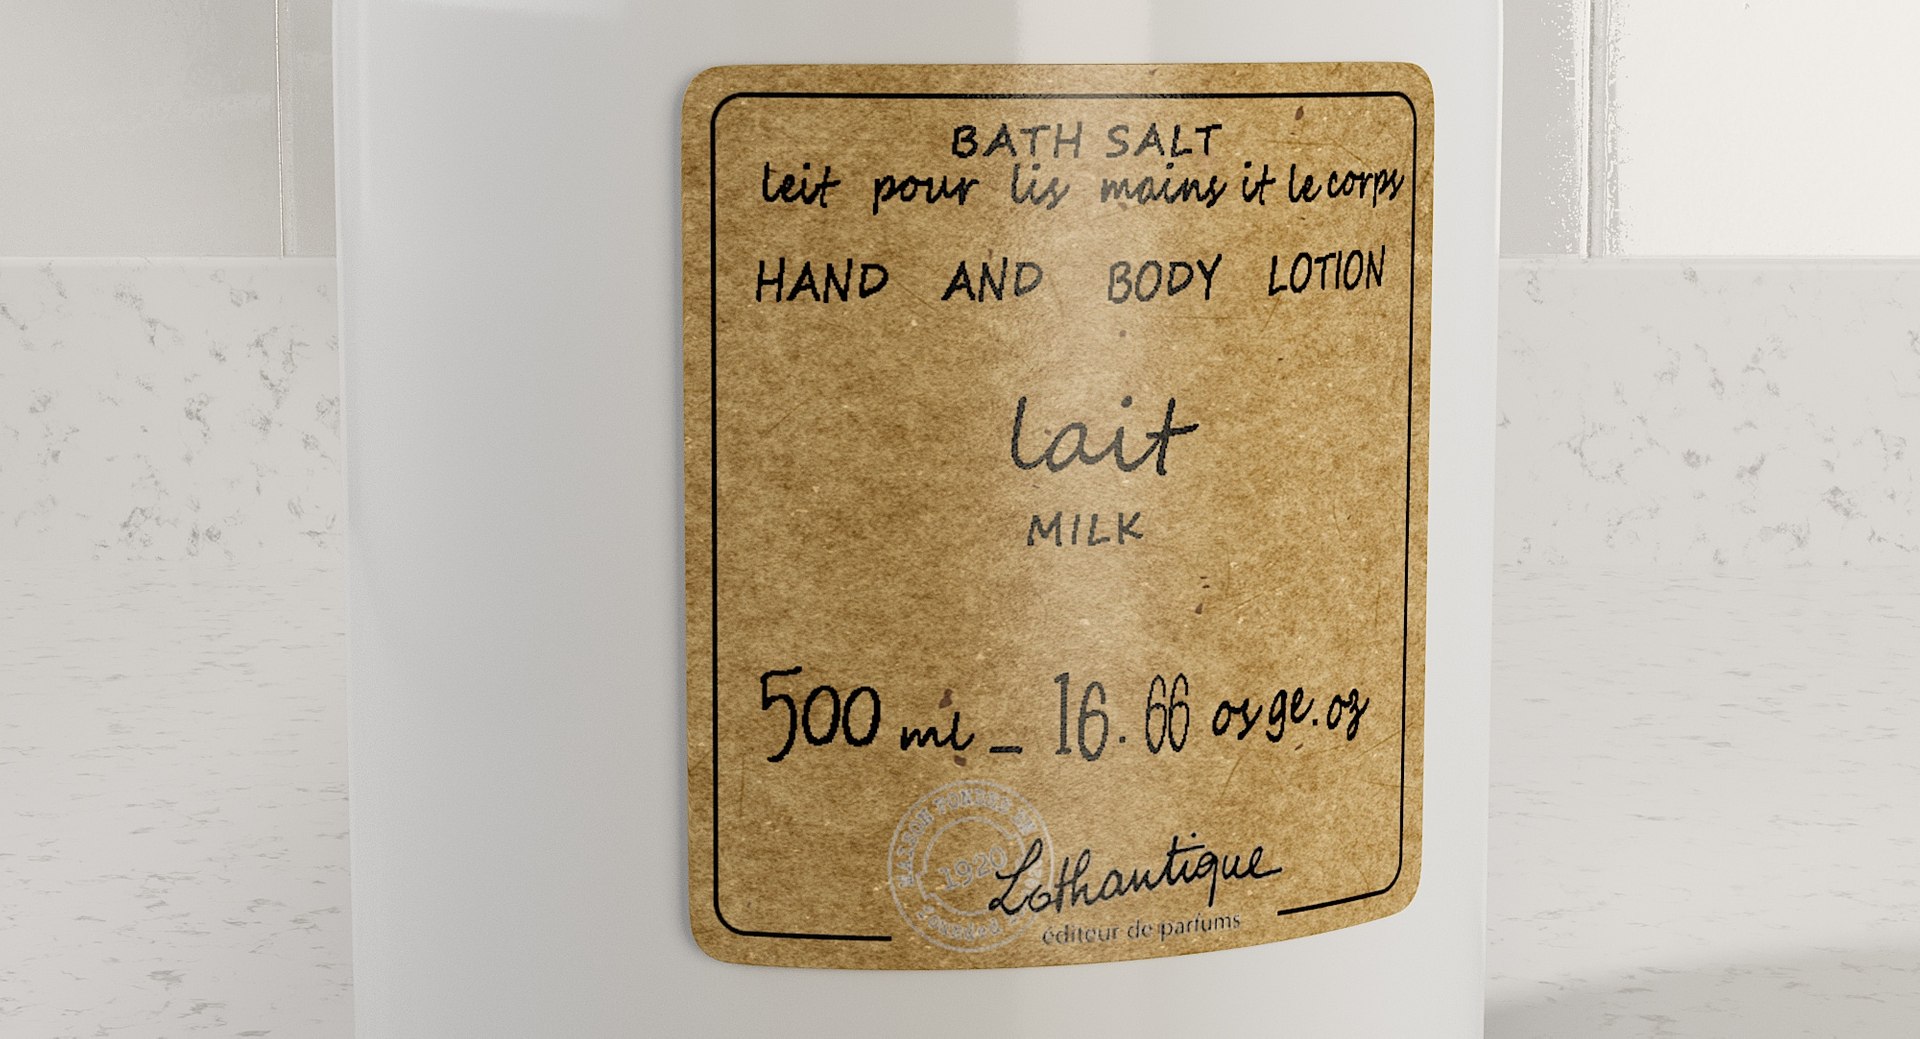 BATH SALT
leit pour lis mains it le corps
HAND AND BODY LOTION
lait
MILK
500 ml _ 16.66 os ge.oz
1920
Lothantique
éditeur de parfums